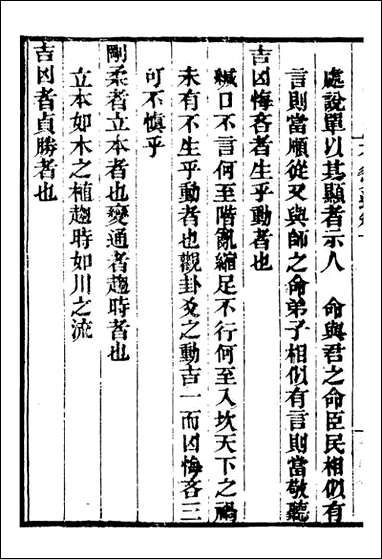 處說單以其顯者示人　命與君之命臣民相似有
言則當順從又與師之命弟子相似有言則當敬聽
吉凶悔吝者生乎動者也
緘口不言何至階亂縮足不行何至入坎天下之禍
未有不生乎動者也觀卦爻之動吉一而凶悔吝三
可不慎乎
剛柔者立本者也變通者趨時者也
立本如木之植趨時如川之流
吉凶者貞勝者也